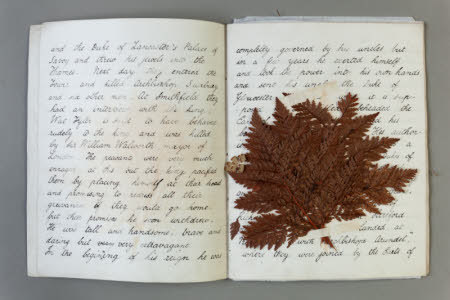 and the Duke of Lancaster's Palace of
Savoy and threw his jewels into the
Thames. Next day they entered the
Tower and killed Archbishop Sudbury
and six other men. At Smithfield they
had an interview with the king.
Wat Tyler is said to have behaved
rudely to the king and was killed
by Sir William Walworth mayor of
London. The peasants were very much
enraged at this but the king pacified
them by placing himself at their head
and promising to redress all their
grievances if they would go home.
but these promises he soon withdrew.
He was tall and handsome, brave and
daring but very very extravagant
In the beginning of his reign he was
completely governed by his uncles but
in a few years he exerted himself
and took the power into his own hands
and sent his uncle the Duke of
Gloucester it is sup-
posed beheaded the
his
His author
Duke of
Hereford
landed at
with Archbishop Arundel,
where they were joined by the Earls of